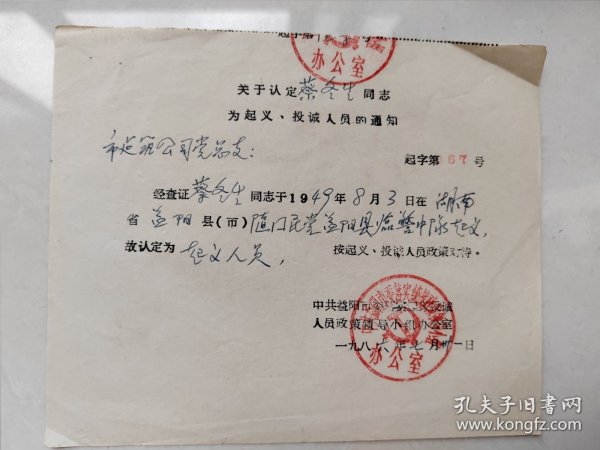 办公室
关于认定蔡冬生同志
为起义、投诚人员的通知
市建筑公司党总支：
起字第 267 号
经查证蔡冬生同志于1949年8月3日在湖南
省益阳县(市)随国民党益阳县临警中队起义，
故认定为起义人员， 按起义、投诚人员政策对待。
中共益阳市 投诚
人员政策领导小组办公室
一九八六年七月卅一日
办公室
孔夫子旧书网
www.kongfz.com